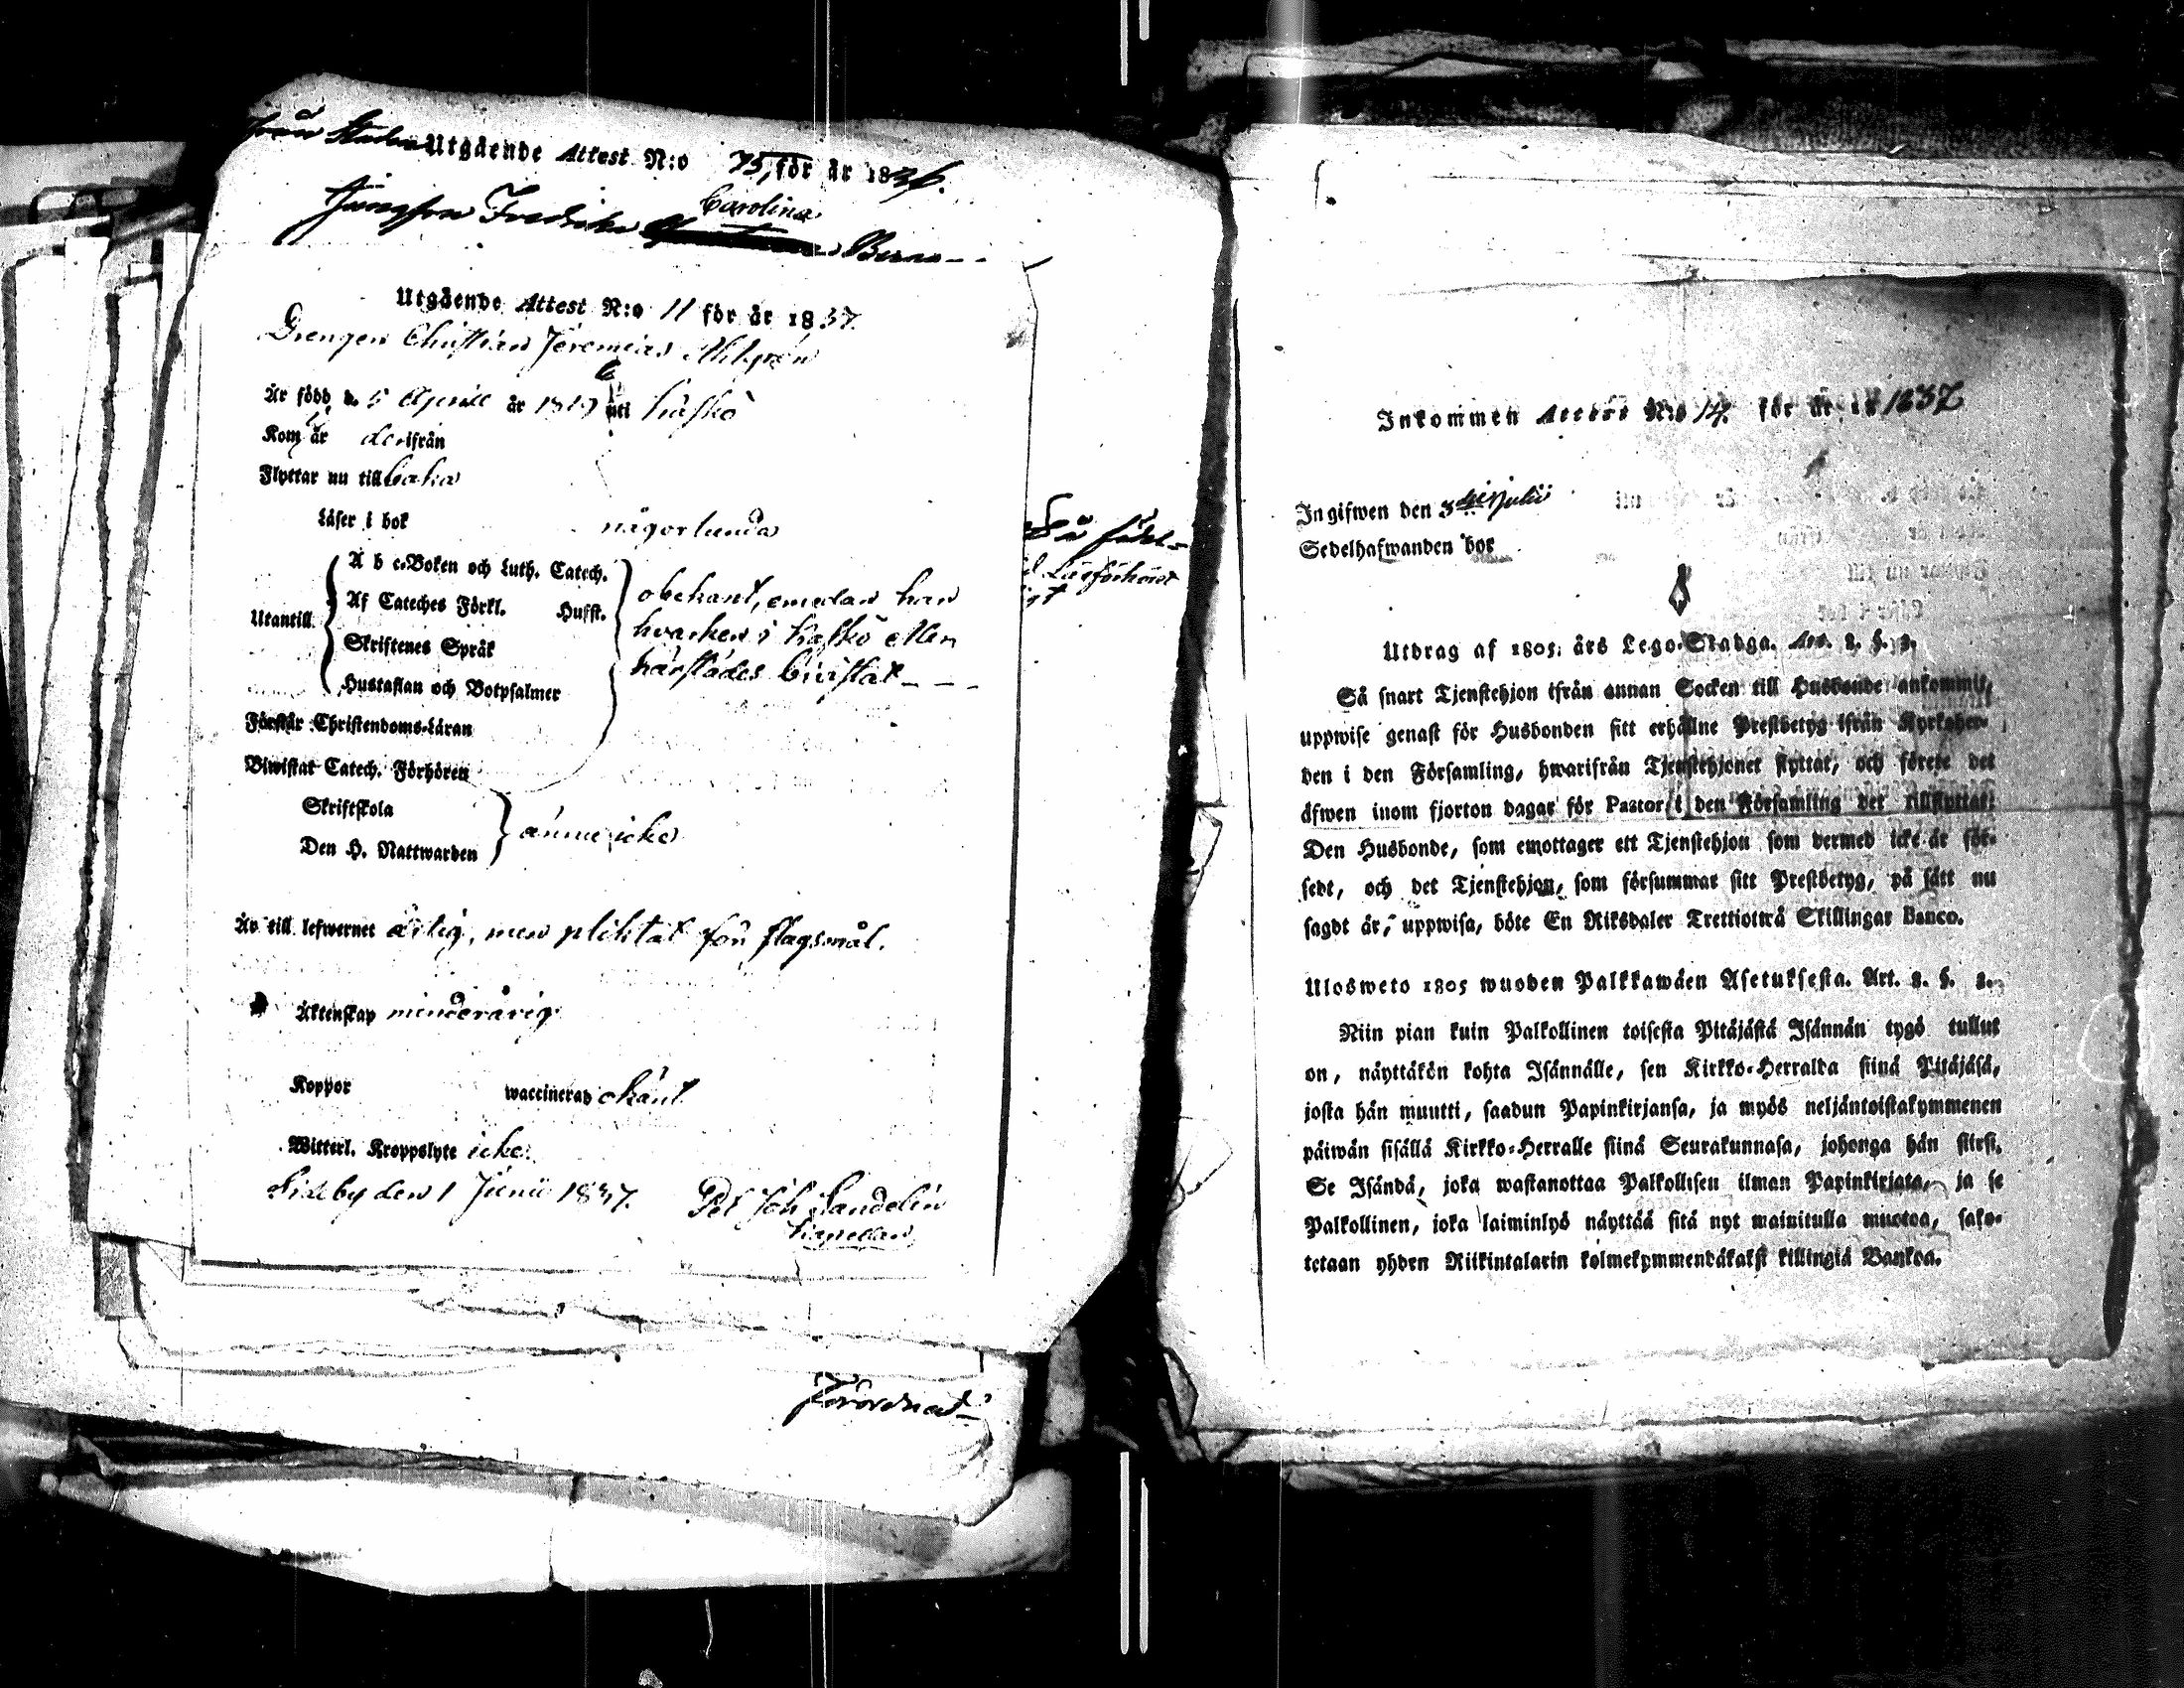 från Staden Utgående Attest N:o 75, för år 1836.
Jungfrun Fredrika Carolina
Utgående Attest N:o 11 för år 1837.
Drengen Christian Jeremias Ahlgrén
Är född d. 5 Aprill år 1819 uti Kaskö
Kom år derifrån
Flyttar nu till baka
Läser i bok någorlunda
Utantill
A b c-Boken och Luth. Catech.
Af Cateches Förkl. Husst.
Skriftenes Språk
Hustaflan och Botpsalmer
obekant, emedan han
hvarken i Kaskö eller
härstädes bivistat - - -
Förstår Christendoms-Läran
Biwistat Catech. Förhören
Skriftskola
Den H. Nattwarden
ännu icke
Är till lefwernet ärlig, men pliktat för slagsmål.
Äktenskap minderårig
Koppor waccinerad okänt
Witterl. Kroppslyte icke.
Sideby den 1 Junii 1837. Pet Joh Sandelin
Kapellan
Läsförhörs
Förordnad
Inkommen Attest N:o 14. för år 18 1837
Ingifwen den 3die Julii
Sedelhafwanden bor
Utdrag af 1805 års Lego-Stadga. Art. 2. §. 3.
Så snart Tjenstehjon ifrån annan Socken till Husbonde ankommit,
uppwise genast för Husbonden sitt erhållne Prestbetyg ifrån Kyrkoher-
den i den Församling, hwarifrån Tjenstehjonet flyttat, och förete det
äfwen inom fjorton dagar för Pastor i den Församling det tillflyttat.
Den Husbonde, som emottager ett Tjenstehjon som dermed icke är för-
sedt, och det Tjenstehjon, som försummar sitt Prestbetyg, på sätt nu
sagdt är, uppwisa, böte En Riksdaler Trettiotwå Skillingar Banco.
Ulosweto 1805 wuoden Palkkawäen Asetuksesta. Art. 2. §. 3.
Niin pian kuin Palkollinen toisesta Pitäjästä Isännän tygö tullut
on, näyttäkön kohta Isännälle, sen Kirkko-Herralda siinä Pitäjäsä,
josta hän muutti, saadun Papinkirjansa, ja myös neljäntoistakymmenen
päiwän sisällä Kirkko-Herralle siinä Seurakunnasa, johonga hän siirsi.
Se Isändä, joka wastanottaa Palkollisen ilman Papinkirjata, ja se
Palkollinen, joka laiminlyö näyttää sitä nyt mainitulla muotoa, sako-
tetaan yhden Riikintalarin kolmekymmendäkaksi killingiä Bankoa.